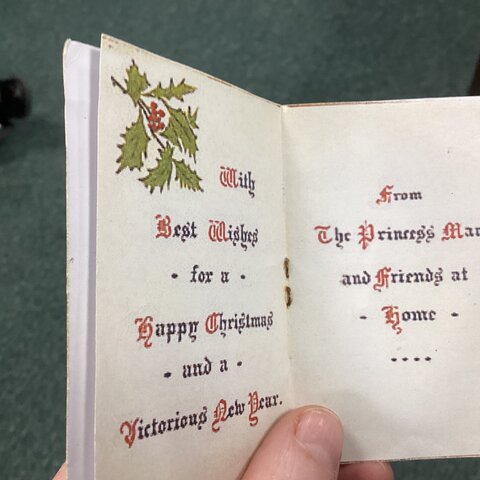 With
Best Wishes
• for a •
Happy Christmas
• and a •
Victorious New Year.
From
The Princess Mar
and Friends at
- Home -
....